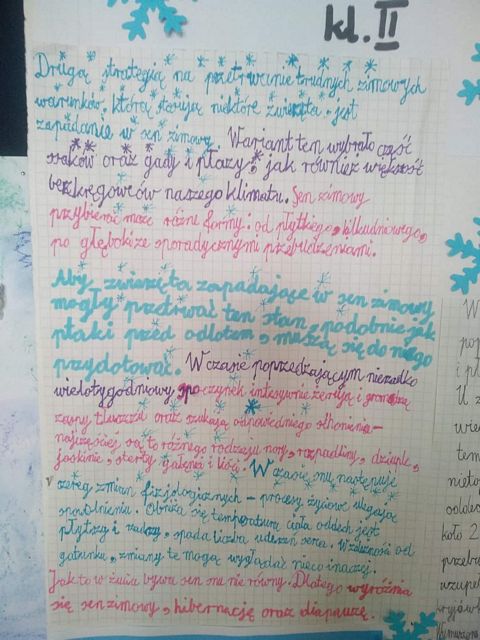 kl. II
Drugą strategią na przetrwanie trudnych zimowych
warunków, którą stosują niektóre zwierzęta jest
zapadanie w sen zimowy. Wariant ten wybrało część
ssaków oraz gady i płazy, jak również większość
bezkręgowców naszego klimatu. Sen zimowy
przybierać może różne formy: od płytkiego, kilkudniowego,
po głębokize sporadycznymi przebudzeniami.
Aby zwierzęta zapadające w sen zimowy
mogły przetrwać ten stan, podobnie jak
ptaki przed odlotem, muszą się do niego
przydotować. W czasie poprzedzającym niezadko
wielotygodniowy spoczynek intensywnie żerują i gromadzą
zapasy tłuszczu oraz szukają odpowiedniego schronienia -
najczęściej są to różnego rodzaju nory, rozpadliny, dziuple,
jaskinie, sterty gałęzi i liści. W czasie snu następuje
szereg zmian fizjologicznych - procesy życiowe ulegają
spowolnieniu. Obniża się temperatura ciała oddech jest
płytszy i rzadszy, spada liczba uderzeń serca. W zależności od
gatunku, zmiany te mogą wyglądać nieco inaczej.
Jak to w życiu bywa sen snu nie równy. Dlatego wyróżnia
się sen zimowy, hibernację oraz diapauzę.